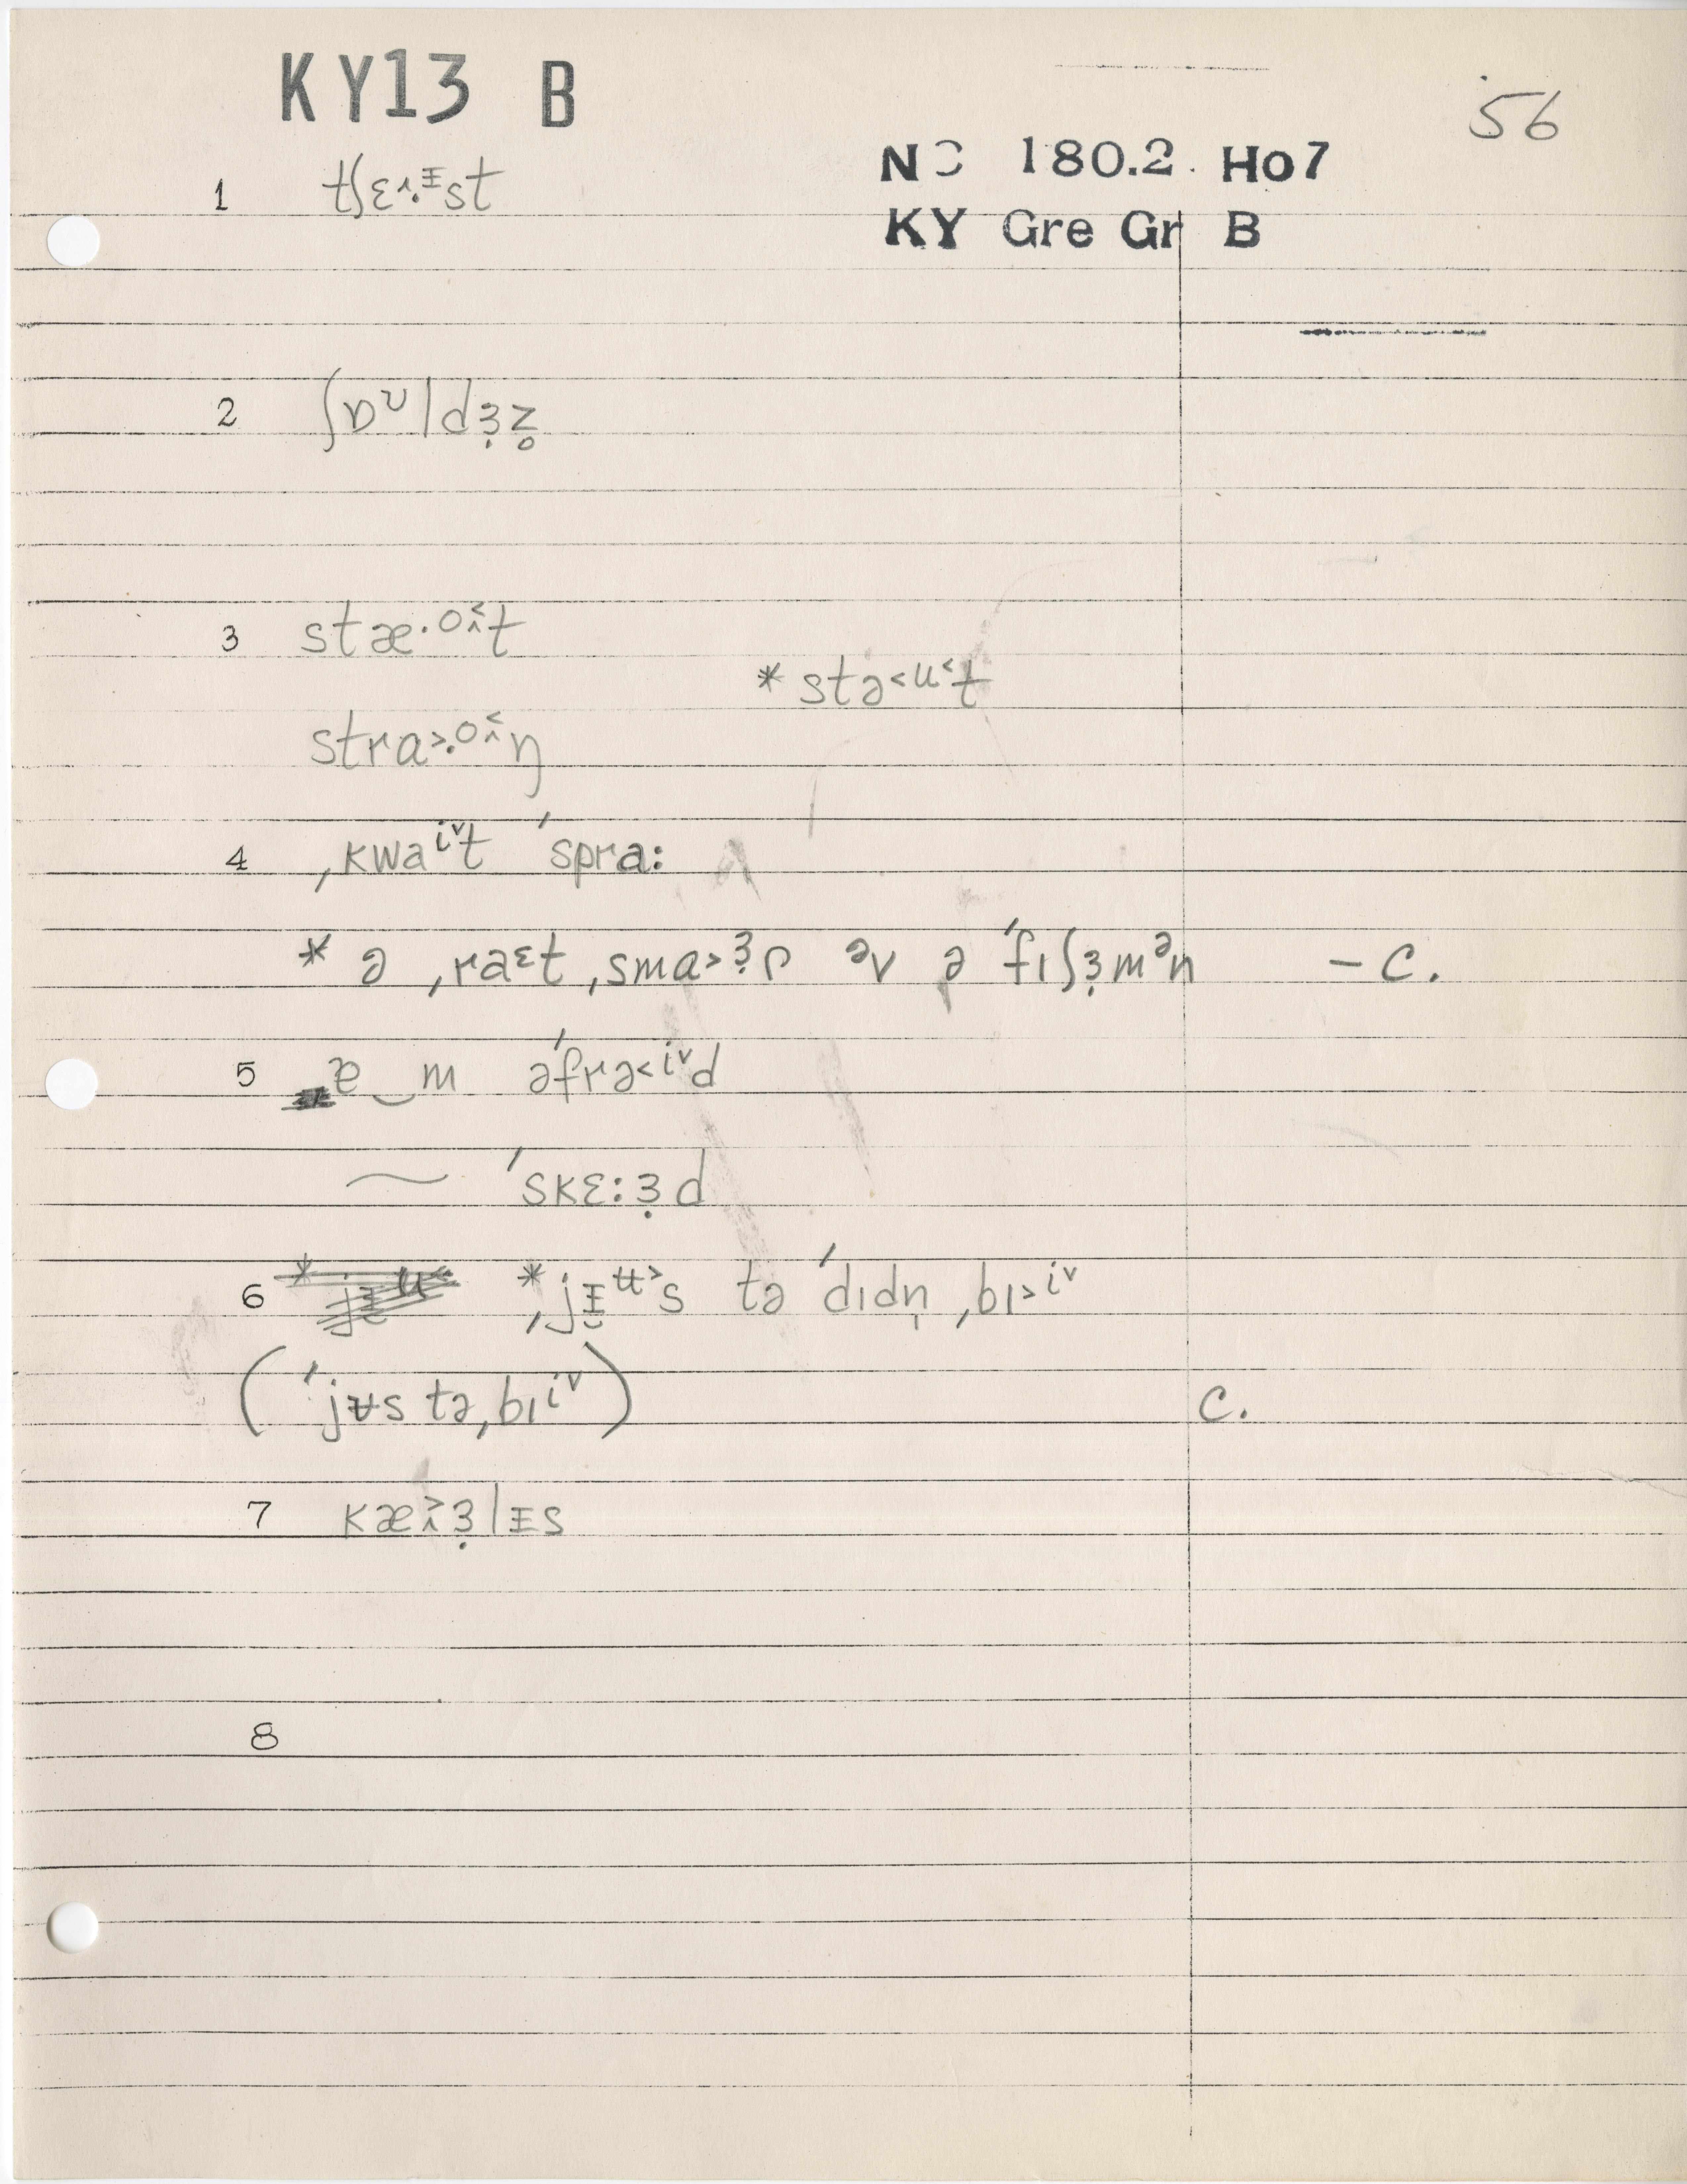 KY13 B
56
NC 180.2. Ho7
KY Gre Gr B
1 tʃɛ˄·ᵻst
2 ʃɒᶷldɝ̣z̥
3 stæ·o˂˄t
* stə˂u˂t
strɑ˃·o˂˄ŋ
4 ˌkwaⁱ˅t ˈsprɑ:
* ə ˌraᵋt ˌsmɑ˃ɝ̣ ᵊv ə ˈfɪʃɝ̣mᵊn – C.
5 æ‿m əˈfrə˂ⁱ˅d
~ ˈskɛ:ɜ̣d
6 * ˌjᵻ̯ᵘ̵˃s tə ˈdɪdn̩ ˌbɪ˃ⁱ˅
(ˈjʉs tə ˌbɪⁱ˅) C.
7 kæ˄˃ɜ̣lᵻs
8